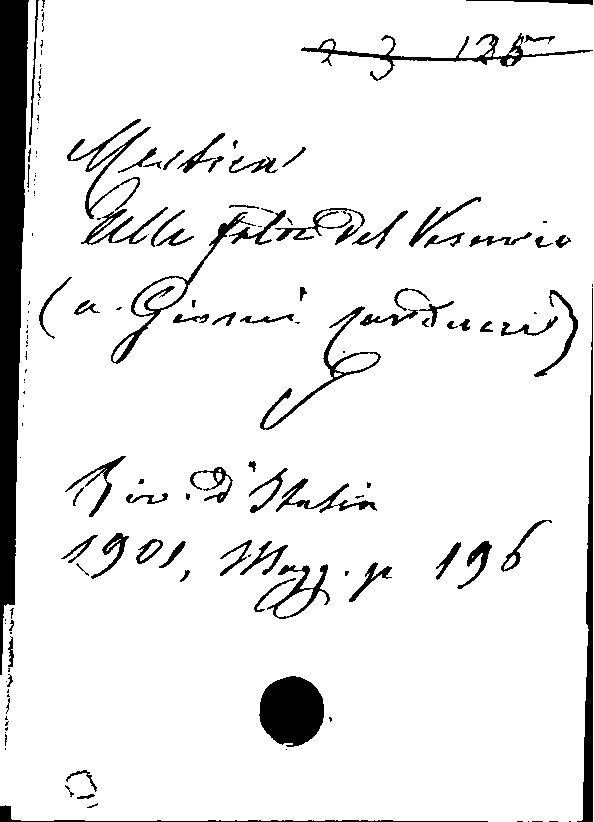 2 3 135
Mestica
Alle falde del Vesuvio
(a Giosuè Carducci)
Riv. d'Italia
1901, Magg. p 196